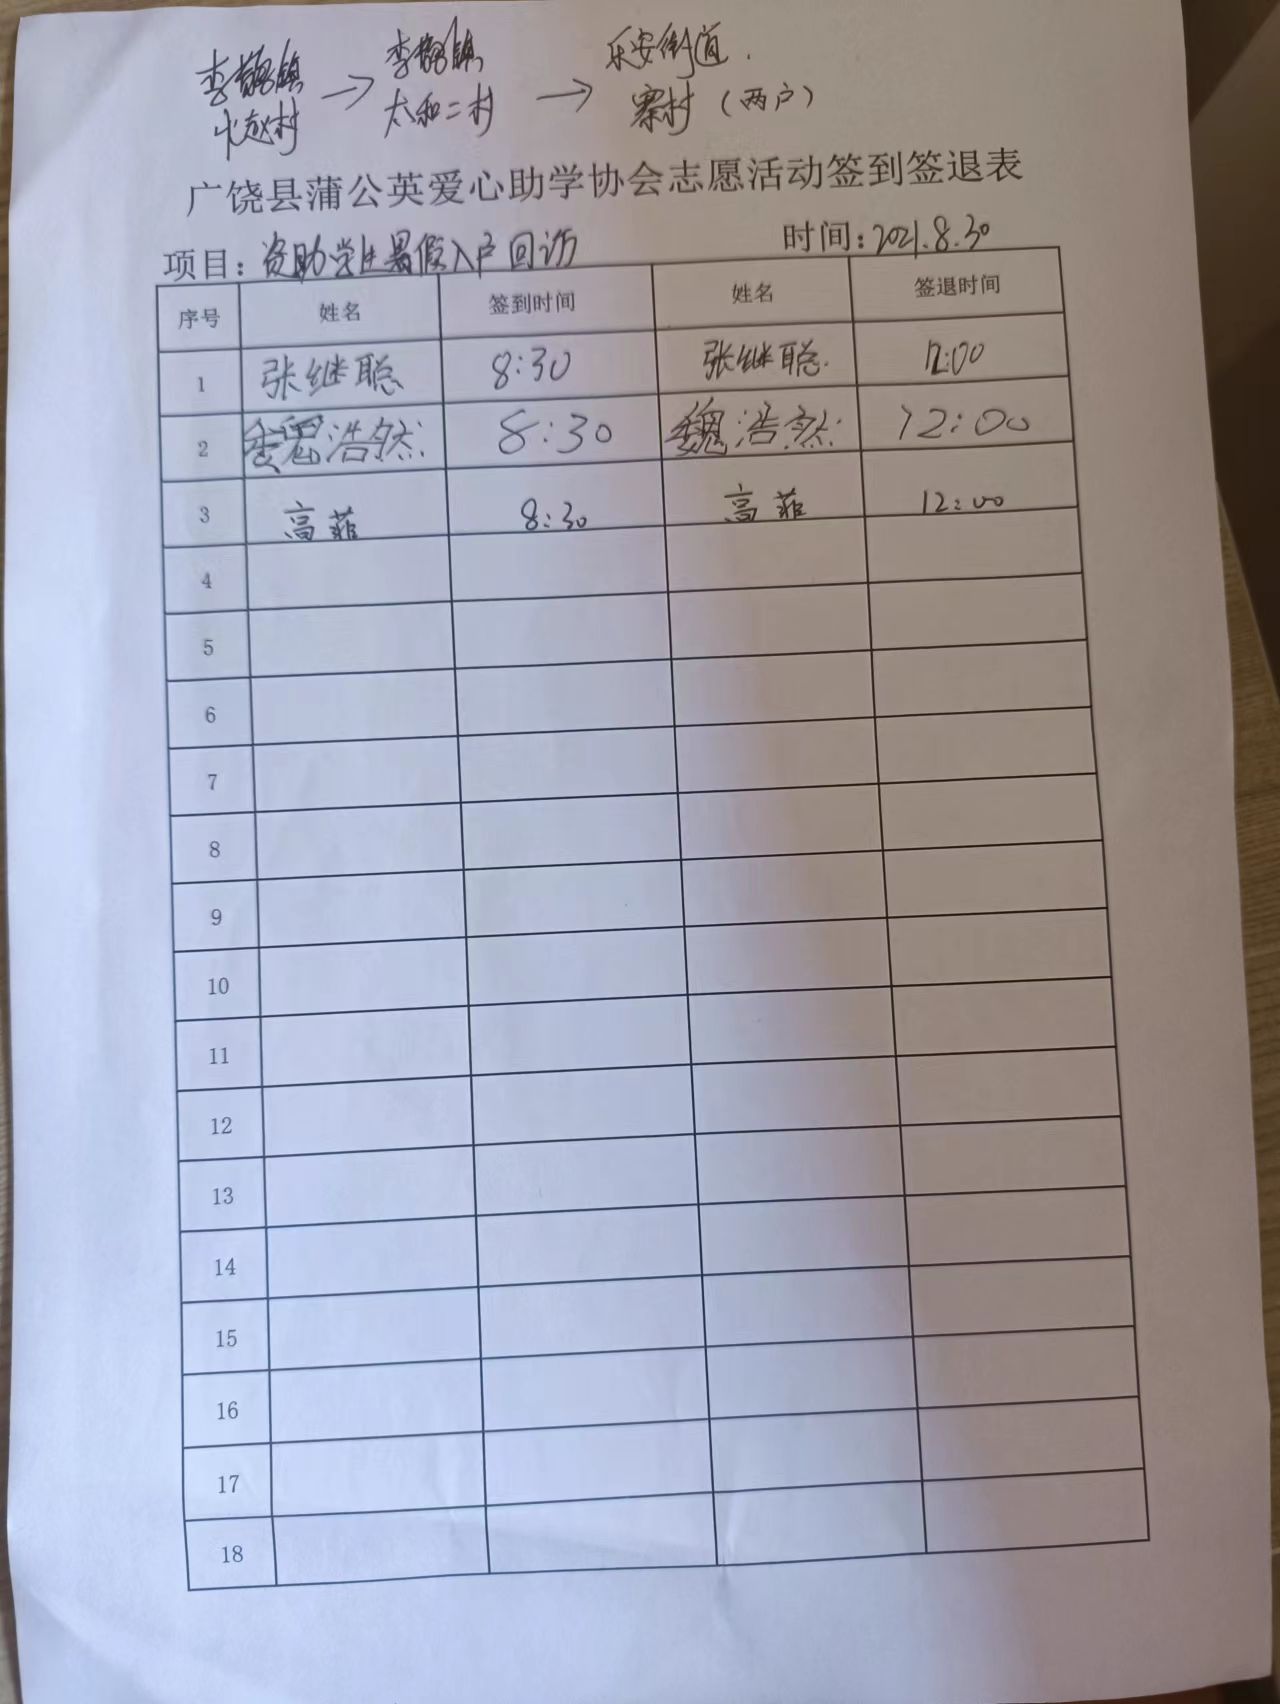 李鹊镇 → 李鹊镇 → 乐安街道.
赵村 太和二村 寨村（两户）
广饶县蒲公英爱心助学协会志愿活动签到签退表
项目：资助学生暑假入户回访 时间：2021.8.30
序号 姓名 签到时间 姓名 签退时间
1 张继聪 8:30 张继聪. 12:00
2 魏浩然 8:30 魏浩然 12:00
3 高菲 8:30 高菲 12:00
4
5
6
7
8
9
10
11
12
13
14
15
16
17
18